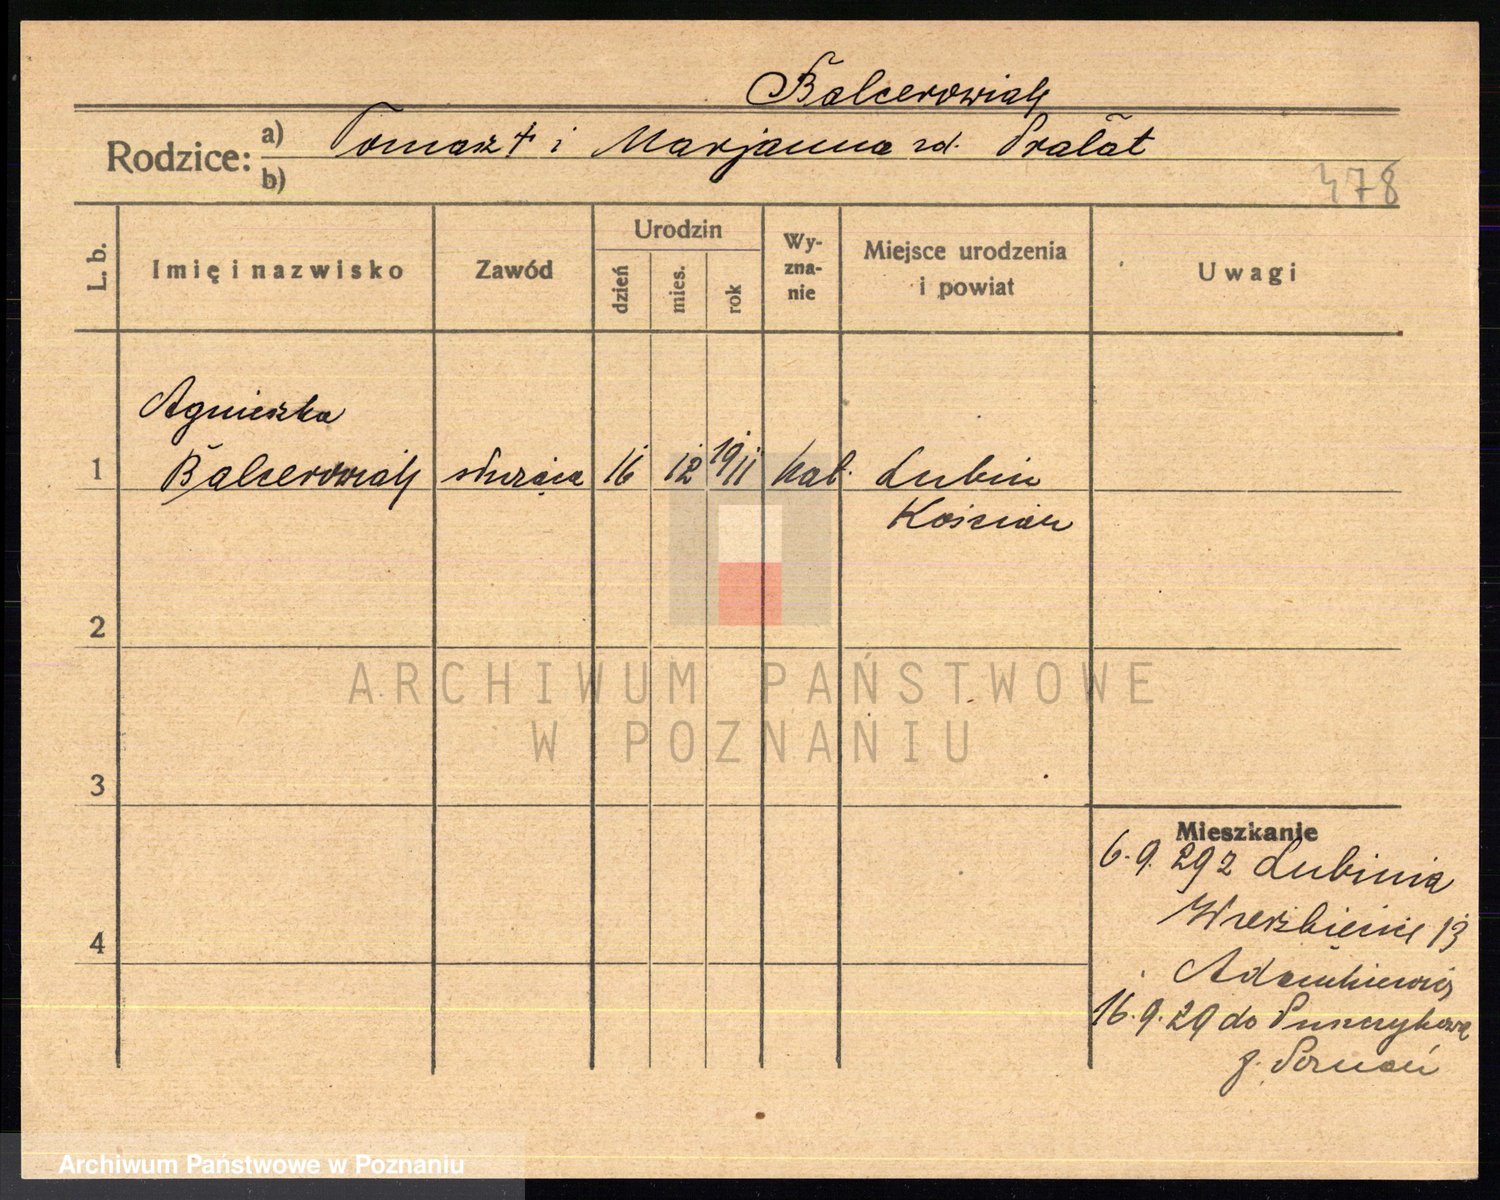 Balcerowiak
Rodzice: a) Tomasz + i Marjanna zd. Prałat
b)
478
L. b.
Imię i nazwisko
Zawód
Urodzin
dzień
mies.
rok
Wy-
zna-
nie
Miejsce urodzenia
i powiat
Uwagi
Agnieszka
1 Balcerowiak służąca 16 12 1911 kat. Lubin
Kościan
2
ARCHIWUM PAŃSTWOWE
W POZNANIU
3
4
Mieszkanie
6.9.29 z Lubinia
Wierzbięcice 13
16.9.29 do Puszczykowa
p. Poznań
Archiwum Państwowe w Poznaniu